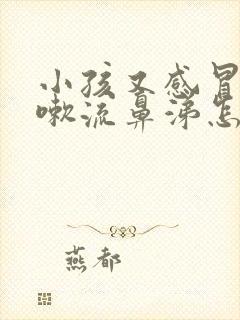 小孩又感冒
嗽流鼻涕怎
燕都